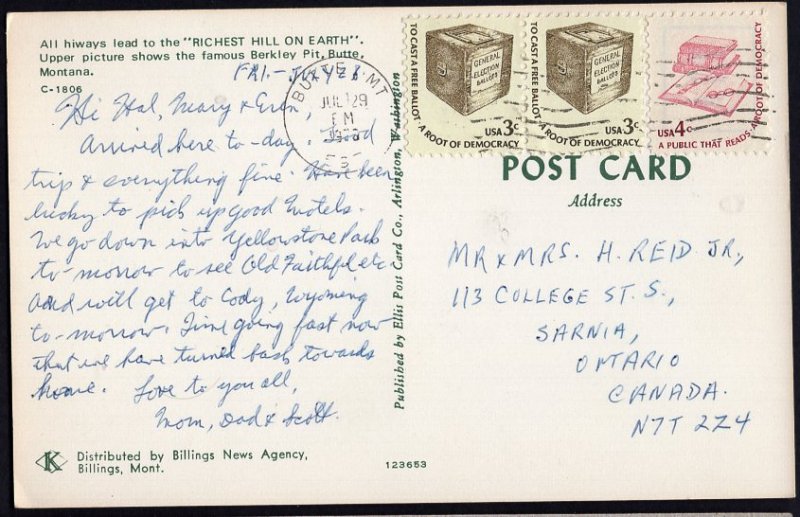 All hiways lead to the "RICHEST HILL ON EARTH".
Upper picture shows the famous Berkley Pit, Butte,
Montana.
C-1806
FRI - JULY 28
Hi Hal, Mary & Eren,
Arrived here to-day. Good
trip & everything fine. Have been
lucky to pick up good motels.
We go down into Yellowstone Park
to-morrow to see Old Faithful etc
and will get to Cody, Wyoming
to-morrow. Time going fast now
that we have turned back towards
home. Love to you all,
Mom, Dad & Scott.
Distributed by Billings News Agency,
Billings, Mont.
K
123653
Published by Ellis Post Card Co., Arlington, Washington
BUTTE MT
JUL 29
PM
TO CAST A FREE BALLOT
A ROOT OF DEMOCRACY
GENERAL
ELECTION
BALLOTS
USA 3c
TO CAST A FREE BALLOT
A ROOT OF DEMOCRACY
GENERAL
ELECTION
BALLOTS
USA 3c
USA 4c
A PUBLIC THAT READS
A ROOT OF DEMOCRACY
POST CARD
Address
MR & MRS. H. REID JR.,
113 COLLEGE ST. S.,
SARNIA,
ONTARIO
CANADA.
N7T 2Z4